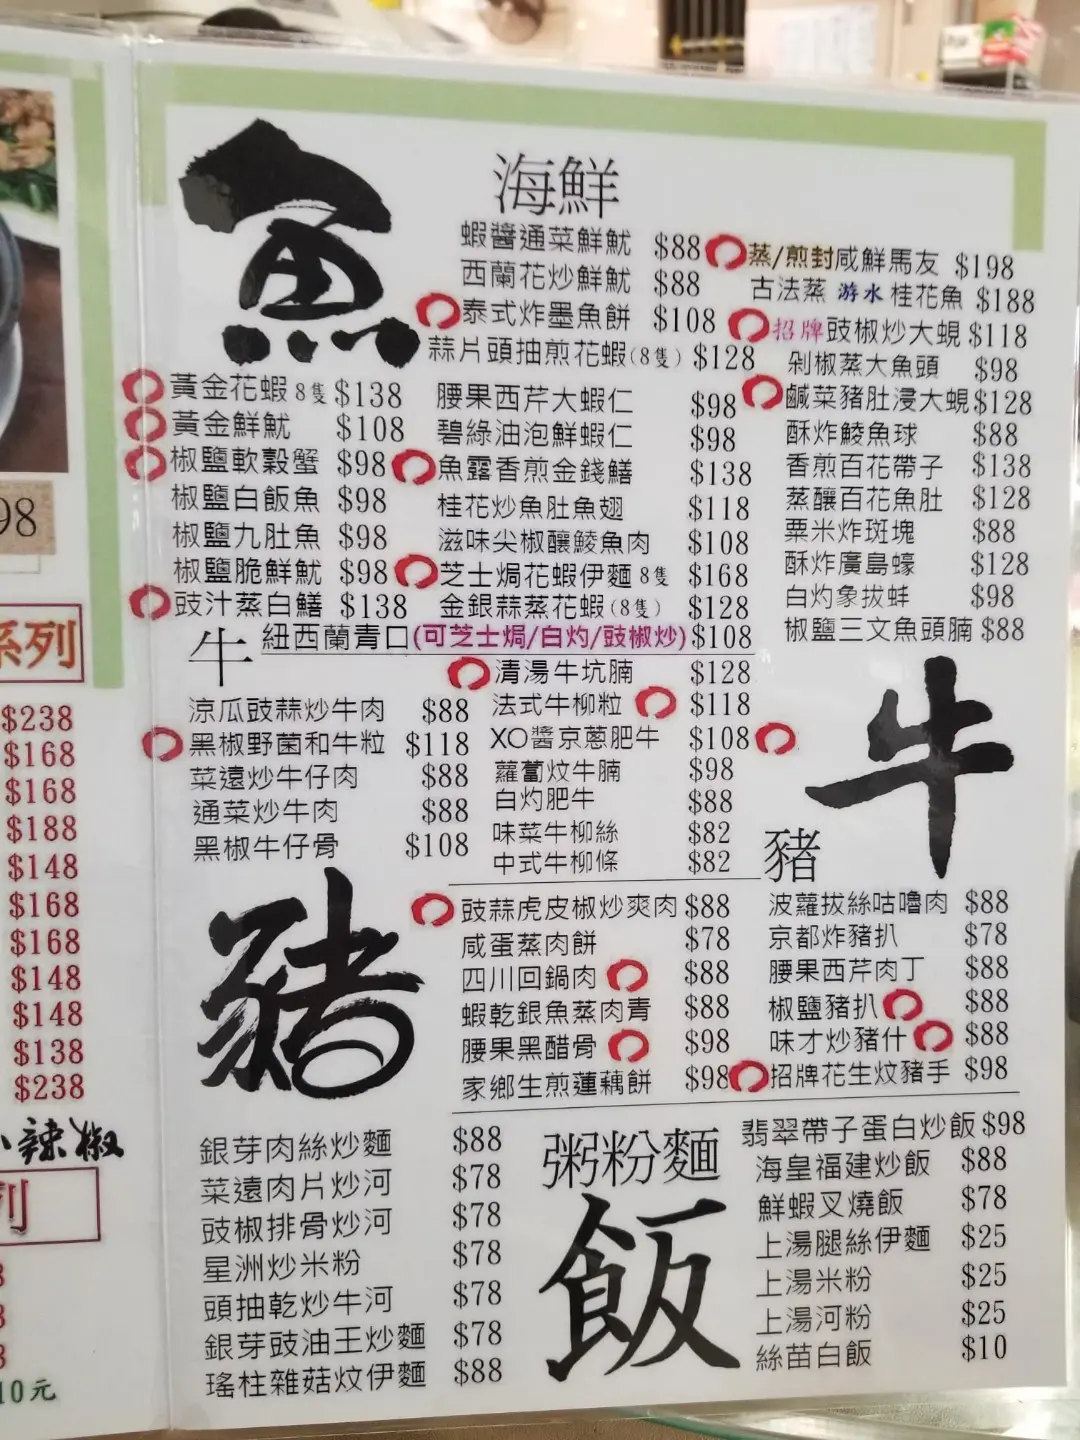 98
系列
$238
$168
$168
$188
$148
$168
$168
$148
$148
$138
$238
辣椒
列
10元
魚
海鮮
蝦醬通菜鮮魷 $88
西蘭花炒鮮魷 $88
泰式炸墨魚餅 $108
蒜片頭抽煎花蝦(8隻) $128
蒸/煎封咸鮮馬友 $198
古法蒸 游水 桂花魚 $188
招牌豉椒炒大蜆 $118
剁椒蒸大魚頭 $98
鹹菜豬肚浸大蜆 $128
酥炸鯪魚球 $88
香煎百花帶子 $138
蒸釀百花魚肚 $128
粟米炸斑塊 $88
酥炸廣島蠔 $128
白灼象拔蚌 $98
椒鹽三文魚頭腩 $88
黃金花蝦 8隻 $138
黃金鮮魷 $108
椒鹽軟殼蟹 $98
椒鹽白飯魚 $98
椒鹽九肚魚 $98
椒鹽脆鮮魷 $98
豉汁蒸白鱔 $138
腰果西芹大蝦仁 $98
碧綠油泡鮮蝦仁 $98
魚露香煎金錢鱔 $138
桂花炒魚肚魚翅 $118
滋味尖椒釀鯪魚肉 $108
芝士焗花蝦伊麵 8隻 $168
金銀蒜蒸花蝦(8隻) $128
紐西蘭青口(可芝士焗/白灼/豉椒炒) $108
牛
涼瓜豉蒜炒牛肉 $88
黑椒野菌和牛粒 $118
菜遠炒牛仔肉 $88
通菜炒牛肉 $88
黑椒牛仔骨 $108
清湯牛坑腩 $128
法式牛柳粒 $118
XO醬京蔥肥牛 $108
蘿蔔炆牛腩 $98
白灼肥牛 $88
味菜牛柳絲 $82
中式牛柳條 $82
牛
豬
豬
豉蒜虎皮椒炒爽肉 $88
咸蛋蒸肉餅 $78
四川回鍋肉 $88
蝦乾銀魚蒸肉青 $88
腰果黑醋骨 $98
家鄉生煎蓮藕餅 $98
波蘿拔絲咕嚕肉 $88
京都炸豬扒 $78
腰果西芹肉丁 $88
椒鹽豬扒 $88
味才炒豬什 $88
招牌花生炆豬手 $98
銀芽肉絲炒麵 $88
菜遠肉片炒河 $78
豉椒排骨炒河 $78
星洲炒米粉 $78
頭抽乾炒牛河 $78
銀芽豉油王炒麵 $78
瑤柱雜菇炆伊麵 $88
粥粉麵
飯
翡翠帶子蛋白炒飯 $98
海皇福建炒飯 $88
鮮蝦叉燒飯 $78
上湯腿絲伊麵 $25
上湯米粉 $25
上湯河粉 $25
絲苗白飯 $10